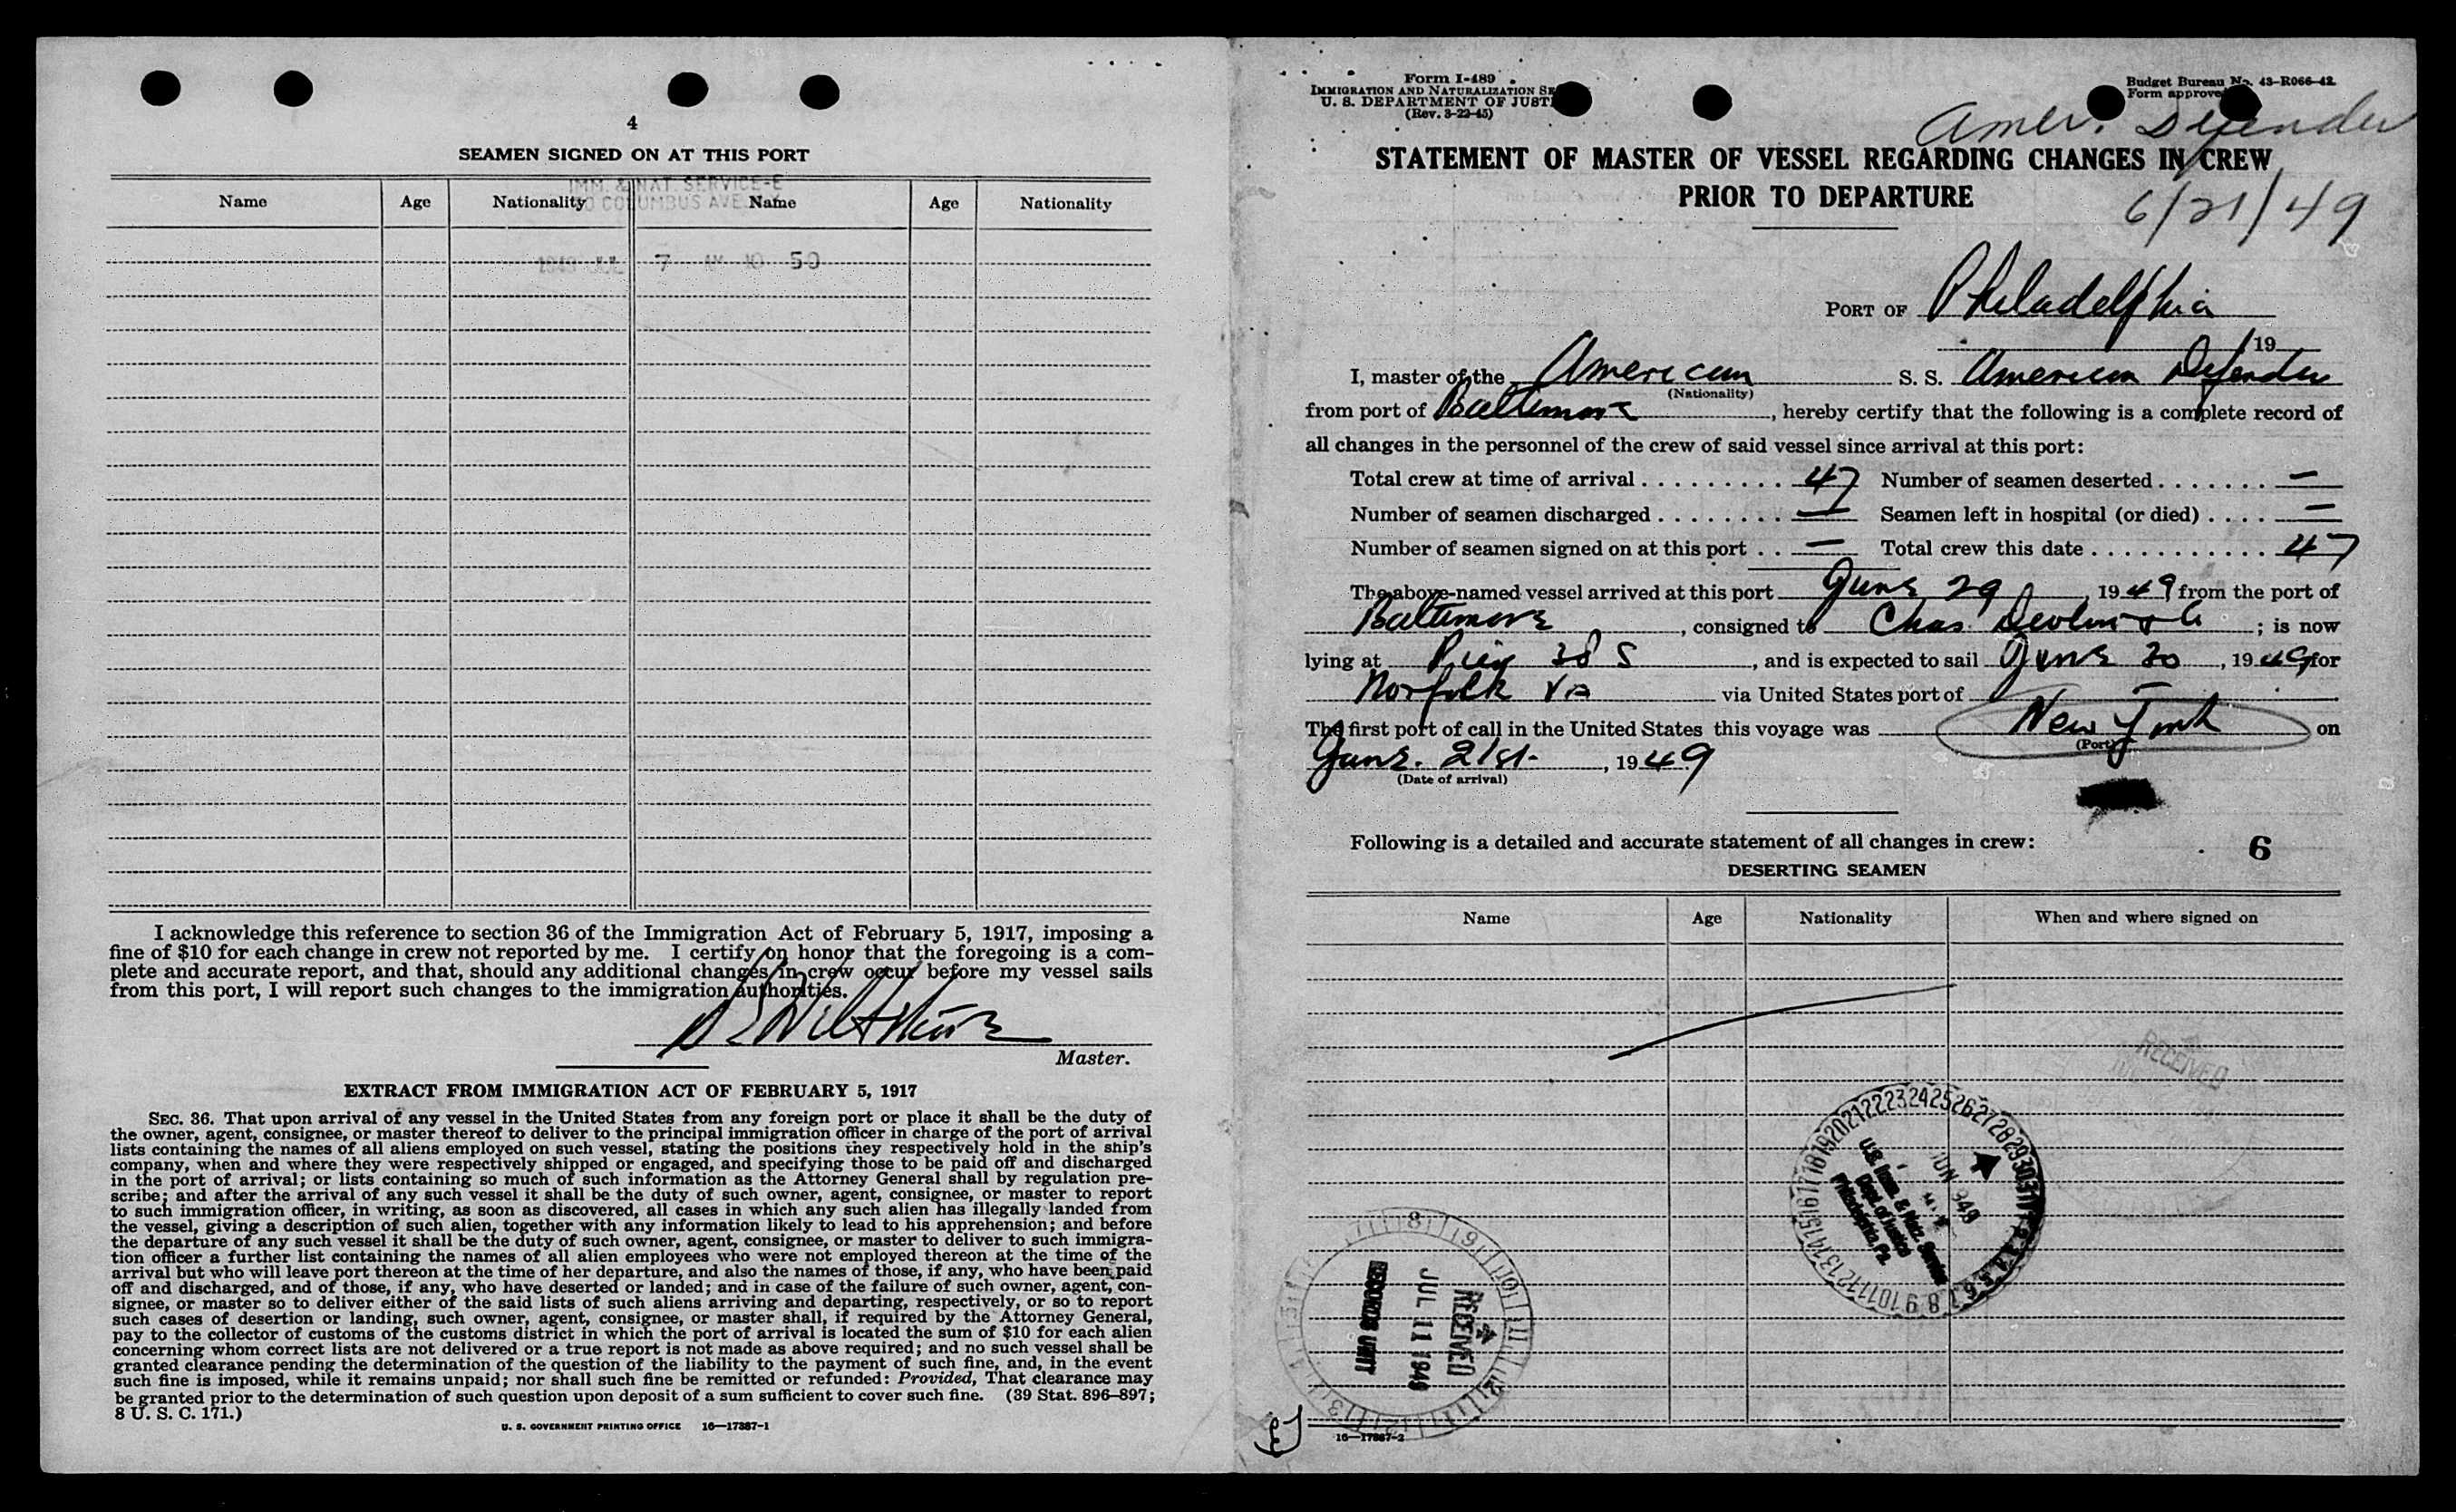 4
SEAMEN SIGNED ON AT THIS PORT
IMM. & NAT. SERVICE-E
COLUMBUS AVE.
Name Age Nationality Name Age Nationality
1949 JUL 7 AM 10 50
I acknowledge this reference to section 36 of the Immigration Act of February 5, 1917, imposing a
fine of $10 for each change in crew not reported by me. I certify on honor that the foregoing is a com-
plete and accurate report, and that, should any additional changes in crew occur before my vessel sails
from this port, I will report such changes to the immigration authorities.
Master.
EXTRACT FROM IMMIGRATION ACT OF FEBRUARY 5, 1917
SEC. 36. That upon arrival of any vessel in the United States from any foreign port or place it shall be the duty of
the owner, agent, consignee, or master thereof to deliver to the principal immigration officer in charge of the port of arrival
lists containing the names of all aliens employed on such vessel, stating the positions they respectively hold in the ship's
company, when and where they were respectively shipped or engaged, and specifying those to be paid off and discharged
in the port of arrival; or lists containing so much of such information as the Attorney General shall by regulation pre-
scribe; and after the arrival of any such vessel it shall be the duty of such owner, agent, consignee, or master to report
to such immigration officer, in writing, as soon as discovered, all cases in which any such alien has illegally landed from
the vessel, giving a description of such alien, together with any information likely to lead to his apprehension; and before
the departure of any such vessel it shall be the duty of such owner, agent, consignee, or master to deliver to such immigra-
tion officer a further list containing the names of all alien employees who were not employed thereon at the time of the
arrival but who will leave port thereon at the time of her departure, and also the names of those, if any, who have been paid
off and discharged, and of those, if any, who have deserted or landed; and in case of the failure of such owner, agent, con-
signee, or master so to deliver either of the said lists of such aliens arriving and departing, respectively, or so to report
such cases of desertion or landing, such owner, agent, consignee, or master shall, if required by the Attorney General,
pay to the collector of customs of the customs district in which the port of arrival is located the sum of $10 for each alien
concerning whom correct lists are not delivered or a true report is not made as above required; and no such vessel shall be
granted clearance pending the determination of the question of the liability to the payment of such fine, and, in the event
such fine is imposed, while it remains unpaid; nor shall such fine be remitted or refunded: Provided, That clearance may
be granted prior to the determination of such question upon deposit of a sum sufficient to cover such fine. (39 Stat. 896-897;
8 U. S. C. 171.)
U. S. GOVERNMENT PRINTING OFFICE 16—17387-1
Form I-489
IMMIGRATION AND NATURALIZATION SE
U. S. DEPARTMENT OF JUSTI
(Rev. 3-22-45)
Budget Bureau No. 43-R066-42.
Form approve
Amer. Defender
STATEMENT OF MASTER OF VESSEL REGARDING CHANGES IN CREW
PRIOR TO DEPARTURE
6/21/49
PORT OF Philadelphia
19
I, master of the American S. S. American Defender
(Nationality)
from port of Baltimore, hereby certify that the following is a complete record of
all changes in the personnel of the crew of said vessel since arrival at this port:
Total crew at time of arrival 47 Number of seamen deserted —
Number of seamen discharged — Seamen left in hospital (or died) —
Number of seamen signed on at this port — Total crew this date 47
The above-named vessel arrived at this port June 29, 1949 from the port of
Baltimore, consigned to Chas. Devlin & Co; is now
lying at Pier 38 S, and is expected to sail June 30, 1949, for
Norfolk Va via United States port of —
The first port of call in the United States this voyage was New York on
(Port)
June. 21st., 1949
(Date of arrival)
Following is a detailed and accurate statement of all changes in crew:
6
DESERTING SEAMEN
Name Age Nationality When and where signed on
RECEIVED
U.S. Imm. & Natz. Service
Dept. of Justice
Philadelphia, Pa.
JUN 1949
RECEIVED
JUL 11 1949
RECORDS UNIT
16—17387-2